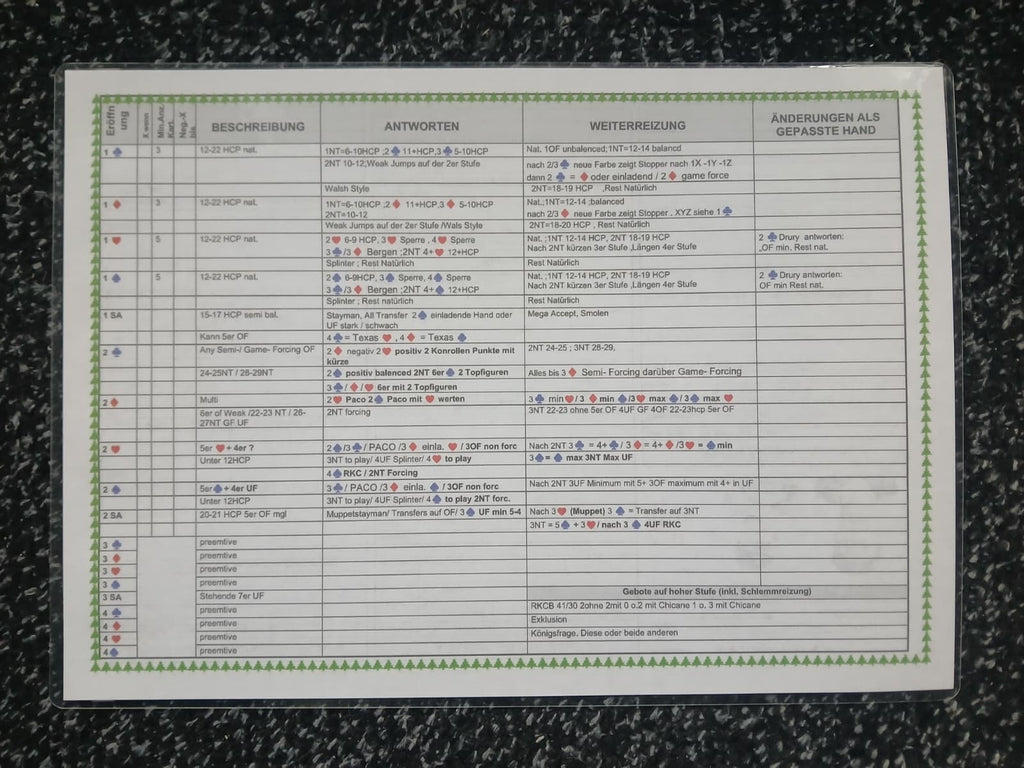 Eröffn ung X wenn Min.Anz. Kart. Neg.-X bis BESCHREIBUNG ANTWORTEN WEITERREIZUNG ÄNDERUNGEN ALS GEPASSTE HAND
1 ♣ 3 12-22 HCP nat. 1NT=6-10HCP ;2♣ 11+HCP,3♣ 5-10HCP Nat. 1OF unbalanced;1NT=12-14 balancd
2NT 10-12;Weak Jumps auf der 2er Stufe nach 2/3 ♣ neue Farbe zeigt Stopper nach 1X -1Y -1Z
dann 2 ♣ = ♦ oder einladend / 2 ♦ game force
Walsh Style 2NT=18-19 HCP ,Rest Natürlich
1 ♦ 3 12-22 HCP nat. 1NT=6-10HCP ;2 ♦ 11+HCP,3 ♦ 5-10HCP Nat.;1NT=12-14 ;balanced
2NT=10-12 nach 2/3 ♦ neue Farbe zeigt Stopper . XYZ siehe 1♣
Weak Jumps auf der 2er Stufe /Wals Style 2NT=18-20 HCP , Rest Natürlich
1 ♥ 5 12-22 HCP nat. 2♥ 6-9 HCP, 3♥ Sperre , 4♥ Sperre Nat. ;1NT 12-14 HCP, 2NT 18-19 HCP 2 ♣ Drury antworten:
3♣/3♦ Bergen ;2NT 4+♥ 12+HCP Nach 2NT kürzen 3er Stufe ,Längen 4er Stufe ,OF min. Rest nat.
Splinter ; Rest Natürlich Rest Natürlich
1 ♠ 5 12-22 HCP nat. 2♠ 6-9HCP, 3♠ Sperre, 4♠ Sperre Nat. ;1NT 12-14 HCP, 2NT 18-19 HCP 2 ♣ Drury antworten:
3♣/3♦ Bergen ;2NT 4+♠ 12+HCP Nach 2NT kürzen 3er Stufe ,Längen 4er Stufe OF min Rest nat.
Splinter ; Rest natürlich Rest Natürlich
1 SA 15-17 HCP semi bal. Stayman, All Transfer 2♠ einladende Hand oder UF stark / schwach Mega Accept, Smolen
Kann 5er OF 4♣= Texas ♥ , 4 ♦ = Texas ♠
2 ♣ Any Semi-/ Game- Forcing OF 2 ♦ negativ 2♥ positiv 2 Konrollen Punkte mit kürze 2NT 24-25 ; 3NT 26-29,
24-25NT / 26-29NT 2♠ positiv balanced 2NT 6er♠ 2 Topfiguren Alles bis 3 ♦ Semi- Forcing darüber Game- Forcing
3♣/ ♦/♥ 6er mit 2 Topfiguren
2 ♦ Multi 2♥ Paco 2♠ Paco mit ♥ werten 3♣ min♥/3 ♦ min ♠/3♥ max ♠/ 3♠ max ♥
6er of Weak /22-23 NT / 26-27NT GF UF 2NT forcing 3NT 22-23 ohne 5er OF 4UF GF 4OF 22-23hcp 5er OF
2 ♥ 5er ♥+ 4er ? 2♠/3♣/ PACO /3♦ einla. ♥ / 3OF non forc Nach 2NT 3♣ = 4+♣/ 3♦= 4+♦/3♥= ♠min
Unter 12HCP 3NT to play/ 4UF Splinter/ 4♥ to play 3♠= ♠ max 3NT Max UF
4♠RKC / 2NT Forcing
2 ♠ 5er♠+ 4er UF 3♣/ PACO /3♦ einla. ♠ / 3OF non forc Nach 2NT 3UF Minimum mit 5+ 3OF maximum mit 4+ in UF
Unter 12HCP 3NT to play/ 4UF Splinter/ 4♠ to play 2NT forc.
2 SA 20-21 HCP 5er OF mgl Muppetstayman/ Transfers auf OF/ 3♠ UF min 5-4 Nach 3♥ (Muppet) 3 ♠ = Transfer auf 3NT
3NT = 5♠ + 3♥/ nach 3 ♠ 4UF RKC
3 ♣ preemtive
3 ♦ preemtive
3 ♥ preemtive
3 ♠ preemtive
3 SA Stehende 7er UF Gebote auf hoher Stufe (inkl. Schlemmreizung)
4 ♣ preemtive RKCB 41/30 2ohne 2mit 0 o.2 mit Chicane 1 o. 3 mit Chicane
4 ♦ preemtive Exklusion
4 ♥ preemtive Königsfrage. Diese oder beide anderen
4♠ preemtive